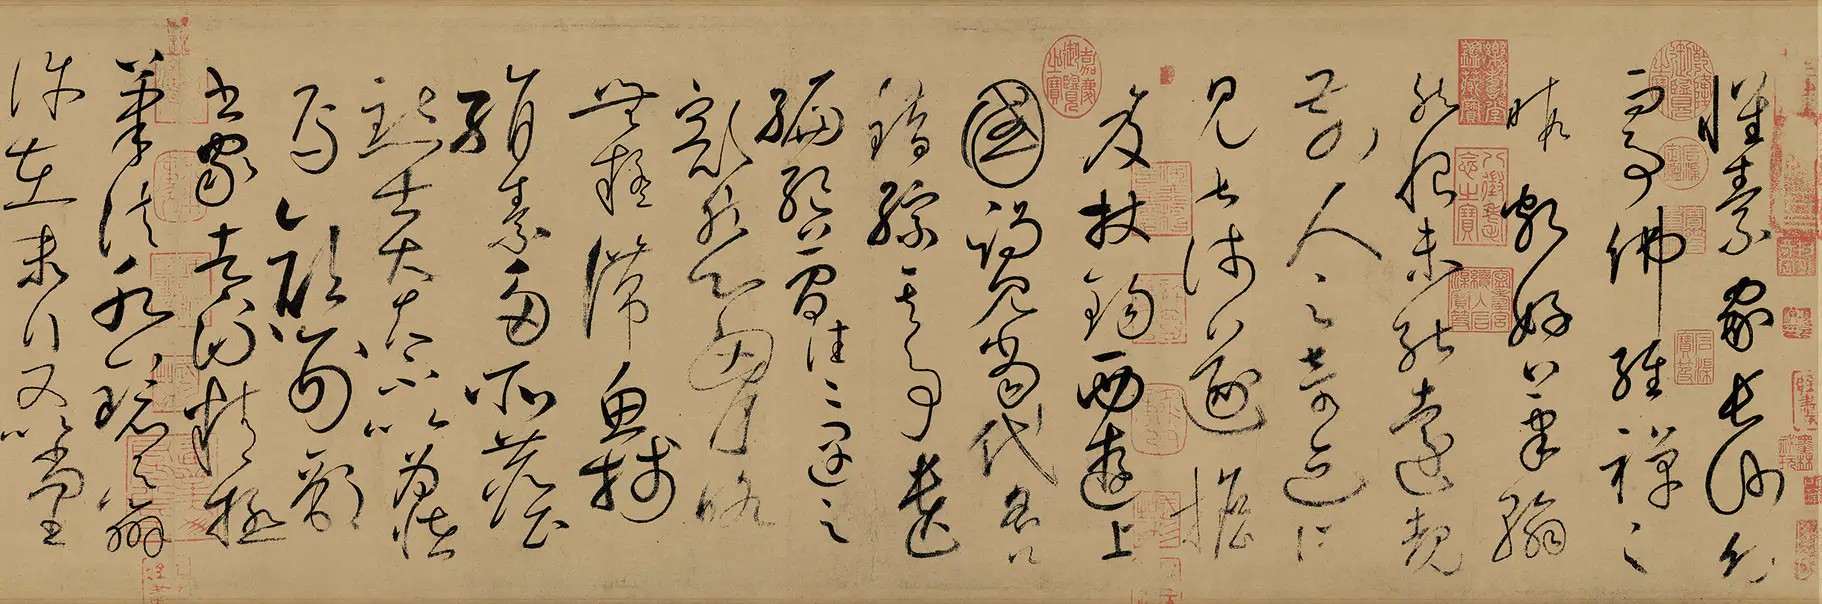 懷素家長沙幼
而事佛經禪之
暇頗好筆翰
然恨未能遠覩
前人之奇迹所
見甚淺遂擔
笈杖錫西遊上
國謁見當代名公
錯綜其事遺
編絕簡往往遇之
豁然心胸略
無疑滯魚牋
絹素多所塵
點士大夫不以為怪
焉顏刑部
書家者流精極
筆法水鏡之辨
許在末行又以尚書
乾隆御覽之寶
八徵耄念之寶
嘉慶御覽之寶